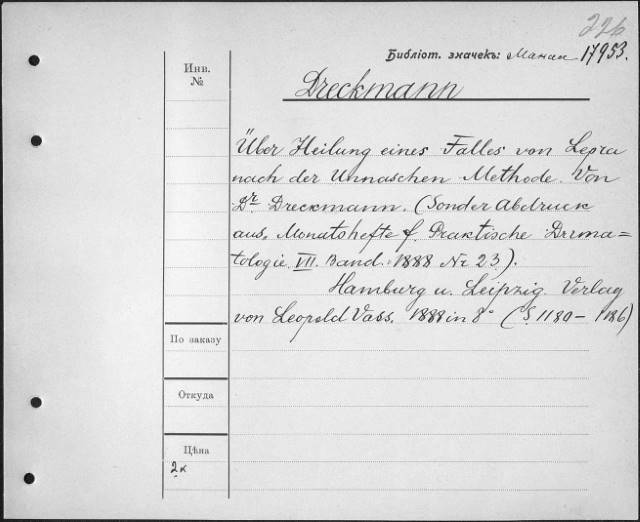 226
Библіот. значекъ: Манас 17953.
Инв.
№
Dreckmann
Über Heilung eines Falles von Lepra
nach der Unnaschen Methode. Von
Dr. Dreckmann. (Sonder Abdruck
aus. Monatshefte f. Praktische Derma=
tologie. VII. Band. 1888 Nr 23).
Hamburg u. Leipzig. Verlag
von Leopold Voss. 1888 in 8° (S. 1180– 1186)
По заказу
Откуда
Цѣна